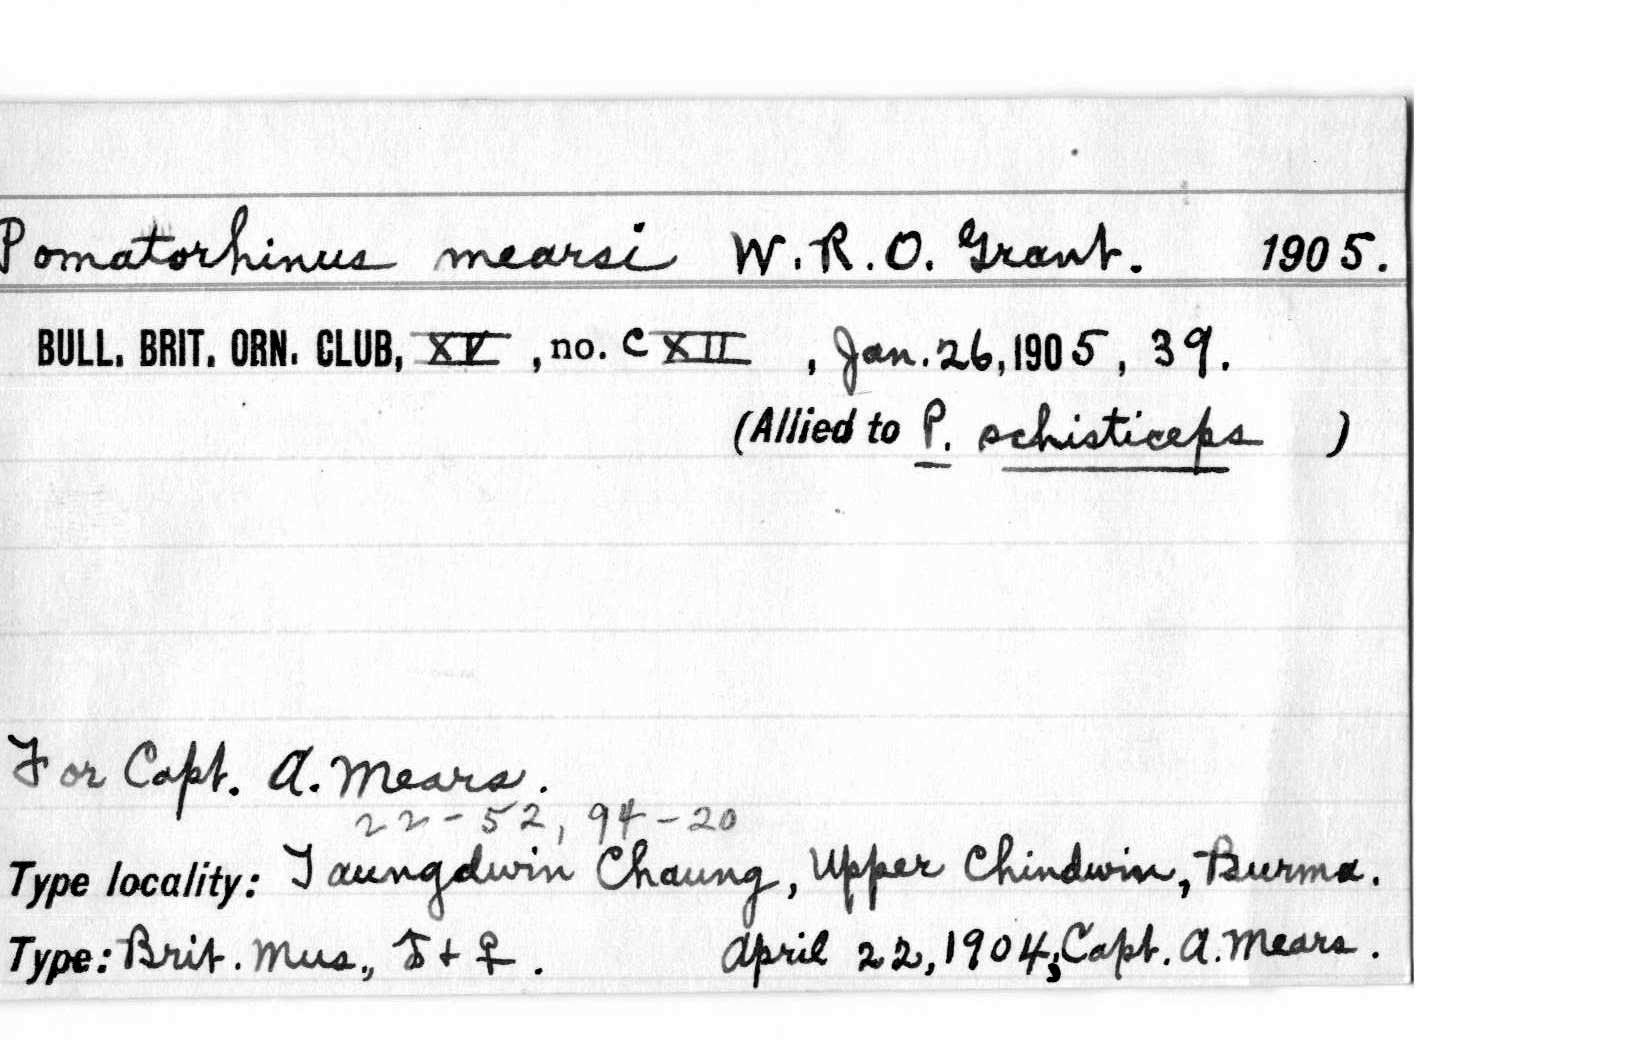 Pomatorhinus mearsi W.R.O. Grant. 1905.
BULL. BRIT. ORN. CLUB, XV, no. CXII, Jan. 26, 1905, 39.
(Allied to P. schisticeps )
For Capt. A. Mears.
22-52, 94-20
Type locality: Taungdwin Chaung, Upper Chindwin, Burma.
Type: Brit. Mus., ♂ + ♀. April 22, 1904; Capt. A. Mears.